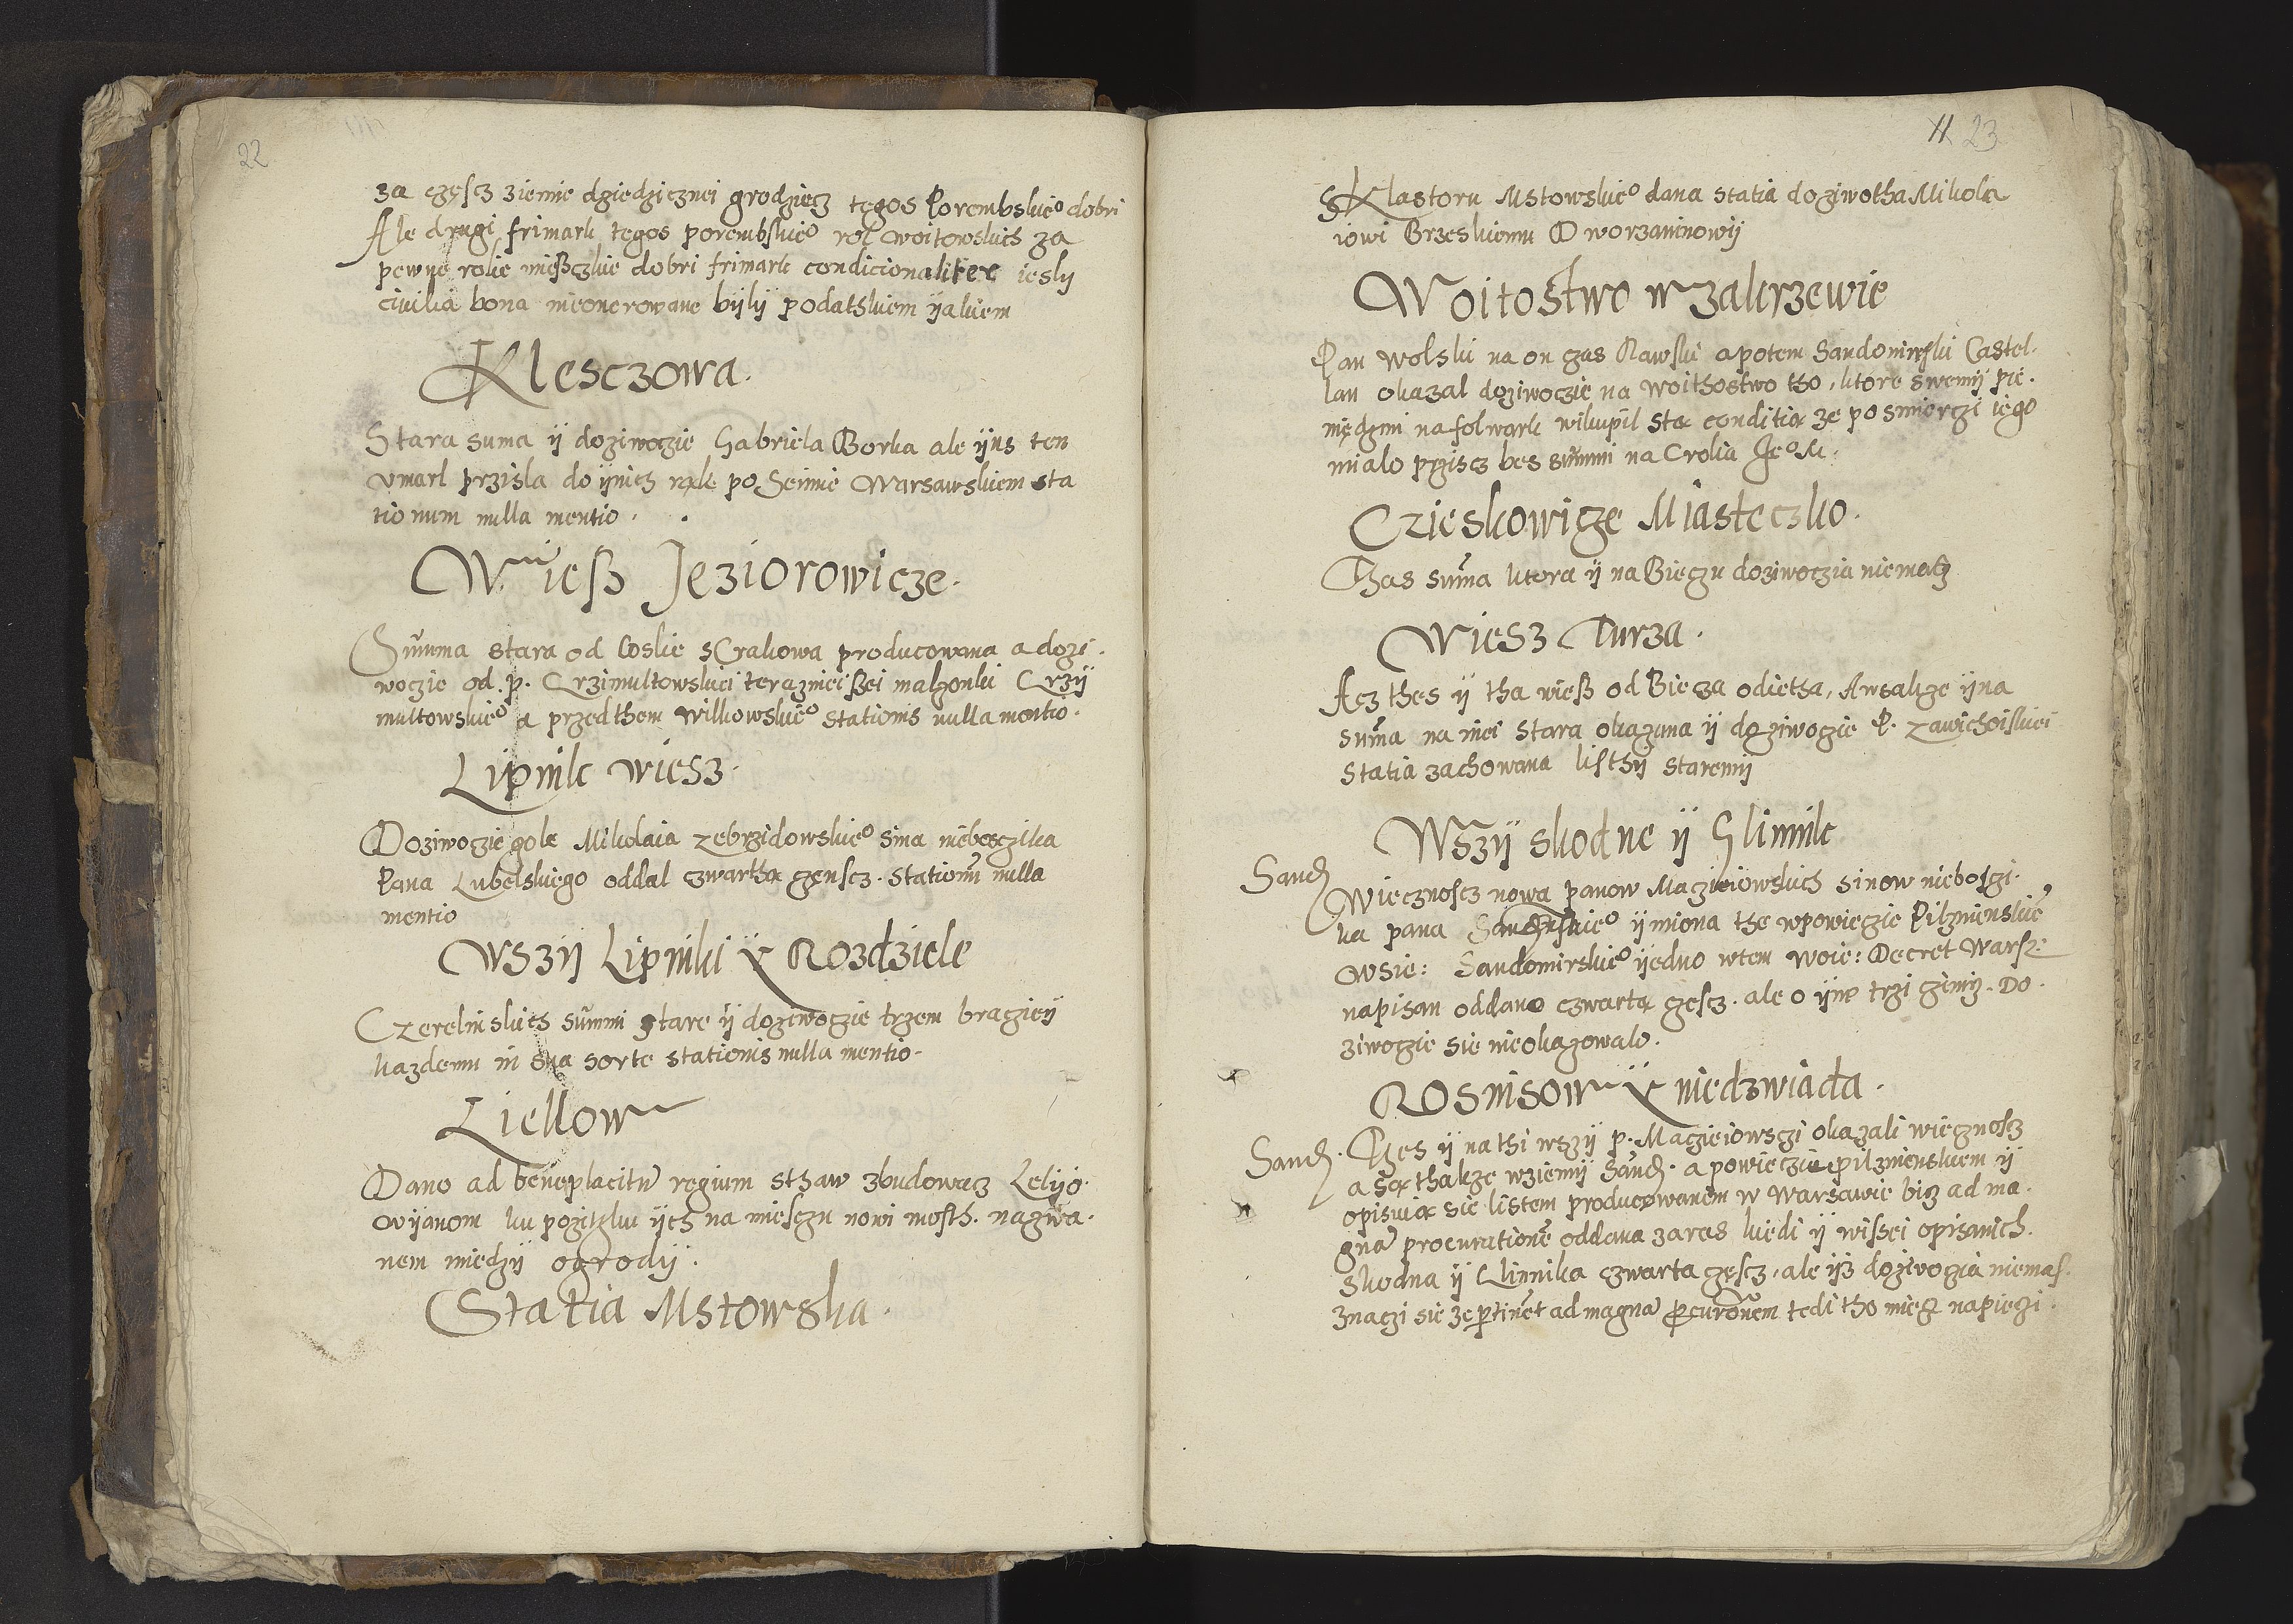 22
za częscz ziemie dziedzicznei grodziecz tegos Porembskieo dobri
Ale drugi frimark tegos porembskieo rol woitowskich za
pewne rolie mießczkie dobri frimark condicionaliter iesly
civilia bona nieonerowane bÿlÿ podatskiem ÿakiem
Klesczowa.
Stara suma ÿ doziwoczie Gabriela Borka ale ÿns ten
vmarl przisla do ÿnich rąk po Seimie Warsawskiem sta
tionum nulla mentio.
Wieß Jeziorowicze.
Summa stara od Coskie s Crakowa producowana a dozi-
woczie od. p. Crzimultowskiei terazmeißei malzonki Crzÿ
multowskieo a przed them Wilkowskieo stationis nulla mentio.
Lipnik wiesz.
Doziwoczie gole Mikolaia Zebrzidowskieo sina niebosczika
Pana Lubelskiego oddal czwartha czenscz. Stationū nulla
mentio
WszÿLipniki ÿ Rozdziele
Czerelinskich summi stare ÿ doziwoczie trzem braciey
kazdemu in sua sorte stationis nulla mentio.
Liellow
Dano ad beneplacitū regium sthaw zbudowacz Lelijo-
wÿanom ku pozitku ÿch na miesczu nowi mosth. nazwa-
nem miedzÿ ogrodÿ.
Statia Mstowska.
11 23
S Klastoru Mstowskieo dana statia doziwotha Mikola
iowi Brzeskiemu Dworzaninowÿ
Woitostwo w Zakrzewie
Pan Wolski na on czas Rawski a potem Sandomirski Castel-
lan okazal doziwoczie na woithostwo tho, ktore swemÿ pie-
niędzmi na folwark wikupil sta conditia ze po smierczi iego
mialo przÿscz bes summi na Crolia Jeo M.
Czieskowicze Miasteczko.
Thas suma ktora ÿ na Bieczu doziwoczia niemasz
Wiesz Turza.
Acz thes ÿ tha wieß od Biecza odietha, A wsakze ÿna
suma na niei stara okazana ÿ doziwoczie P. Zawichoiskiei
statia zachowana listhÿ staremÿ
Wszÿ skodne ÿ Glinnik
Sand
Wiecznoscz nowa panow Maczieiowskich sinow nieboszczi-
ka pana Sandzkieo ÿ miona the w powieczie Pilznienskie
w sie: Sandomirskieo ÿ jedno w tem woie: Decret Warsz:
napisan oddano czwarta czescz. ale o ÿne trzi czinią. Do-
ziwoczie sie nieokazowalo.
Rosnisow ÿ niedzwiada.
Sand.
Thes ÿ na thi wszÿ p. Macieiowsczi okazali wiecznoscz
a są thakze w ziemÿ Sand. a powieczie pilznienskiem ÿ
opisuią sie listem producowanem w Warsawie bicz ad ma-
gnā procurationē oddana zaras kiedi ÿ wissei opisanich.
Skodna ÿ Glinnika czwarta czescz. ale ÿz doziwoczia niemas.
znaczi sie ze ptinēt ad magnā pcuronem tedi tho miecz napieczi.